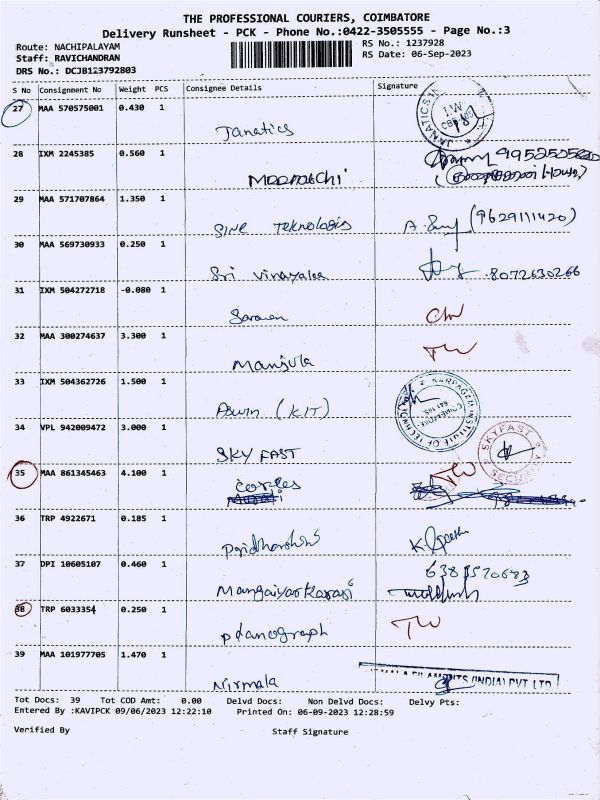 THE PROFESSIONAL COURIERS, COIMBATORE
Delivery Runsheet - PCK - Phone No.:0422-3505555 - Page No.:3
Route: NACHIPALAYAM
RS No.: 1237928
Staff: RAVICHANDRAN
RS Date: 06-Sep-2023
DRS No.: DCJB123792803
S No Consignment No Weight PCS Consignee Details Signature
27 MAA 570575001 0.430 1
Janatics
28 IXM 2245385 0.560 1
Meenakchi
29 MAA 571707864 1.350 1
Sine Teknologis (9629111420)
30 MAA 569730933 0.250 1
Sri Vinayaka 8072630266
31 IXM 504272718 -0.080 1
Saravan
32 MAA 300274637 3.300 1
Manjula TW
33 IXM 504362726 1.500 1
Aswin (KIT)
34 VPL 942009472 3.000 1
SKY FAST
SKYFAST SECURITY
35 MAA 861345463 4.100 1
TW
36 TRP 4922671 0.185 1
37 DPI 10605107 0.460 1
Mangaiyarkarasi
38 TRP 6033354 0.250 1
planograph TW
39 MAA 101977705 1.470 1
Nirmala FILAMENTS (INDIA) PVT LTD
Tot Docs: 39 Tot COD Amt: 0.00 Delvd Docs: Non Delvd Docs: Delvy Pts:
Entered By :KAVIPCK 09/06/2023 12:22:10 Printed On: 06-09-2023 12:28:59
Verified By Staff Signature